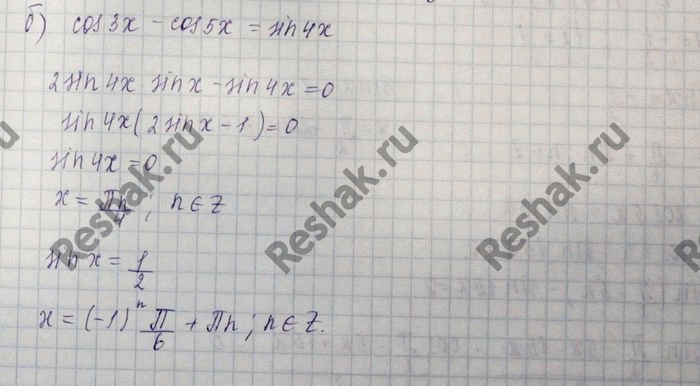 б) cos3x - cos5x = sin4x
2sin4x sinx - sin4x = 0
sin4x(2sinx - 1) = 0
sin4x = 0
x = πn/4; n ∈ Z
sinx = 1/2
x = (-1)ⁿ π/6 + πn; n ∈ Z.
Reshak.ru
Reshak.ru
Reshak.ru